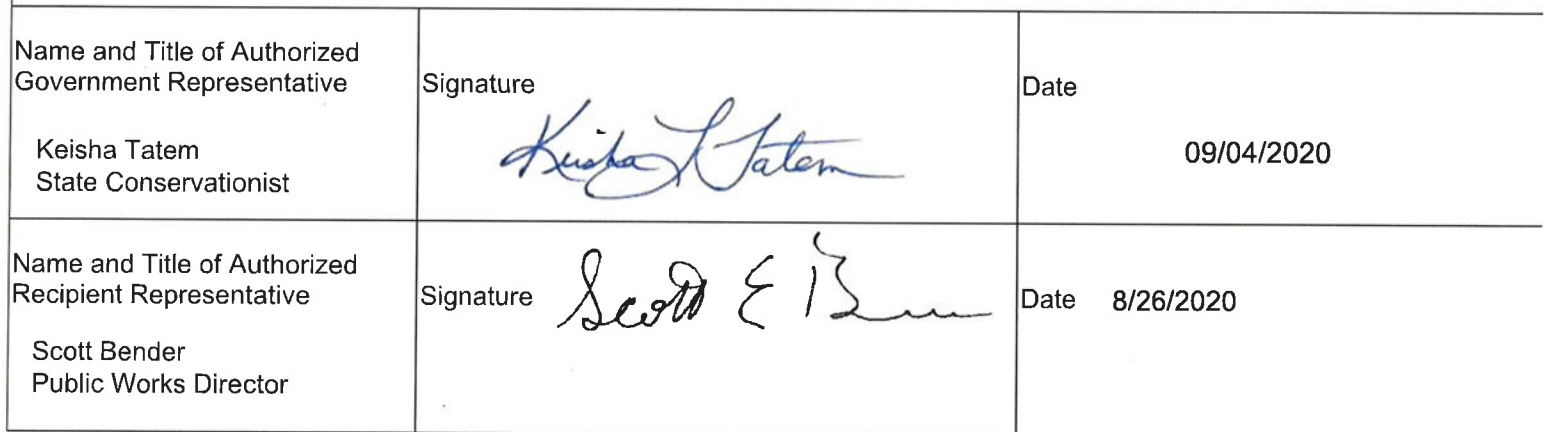 Name and Title of Authorized
Government Representative
Keisha Tatem
State Conservationist
Signature
Keisha L Tatem
Date
09/04/2020
Name and Title of Authorized
Recipient Representative
Scott Bender
Public Works Director
Signature
Scott E B
Date 8/26/2020